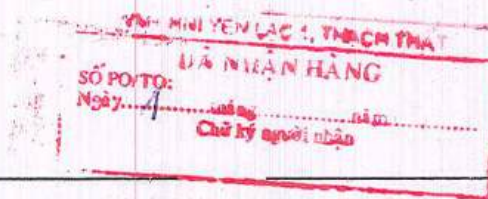 YÊN LẠC 1, THẠCH THẤT
ĐÃ NHẬN HÀNG
SỐ PO/TO:
Ngày 1 tháng năm
Chữ ký người nhận